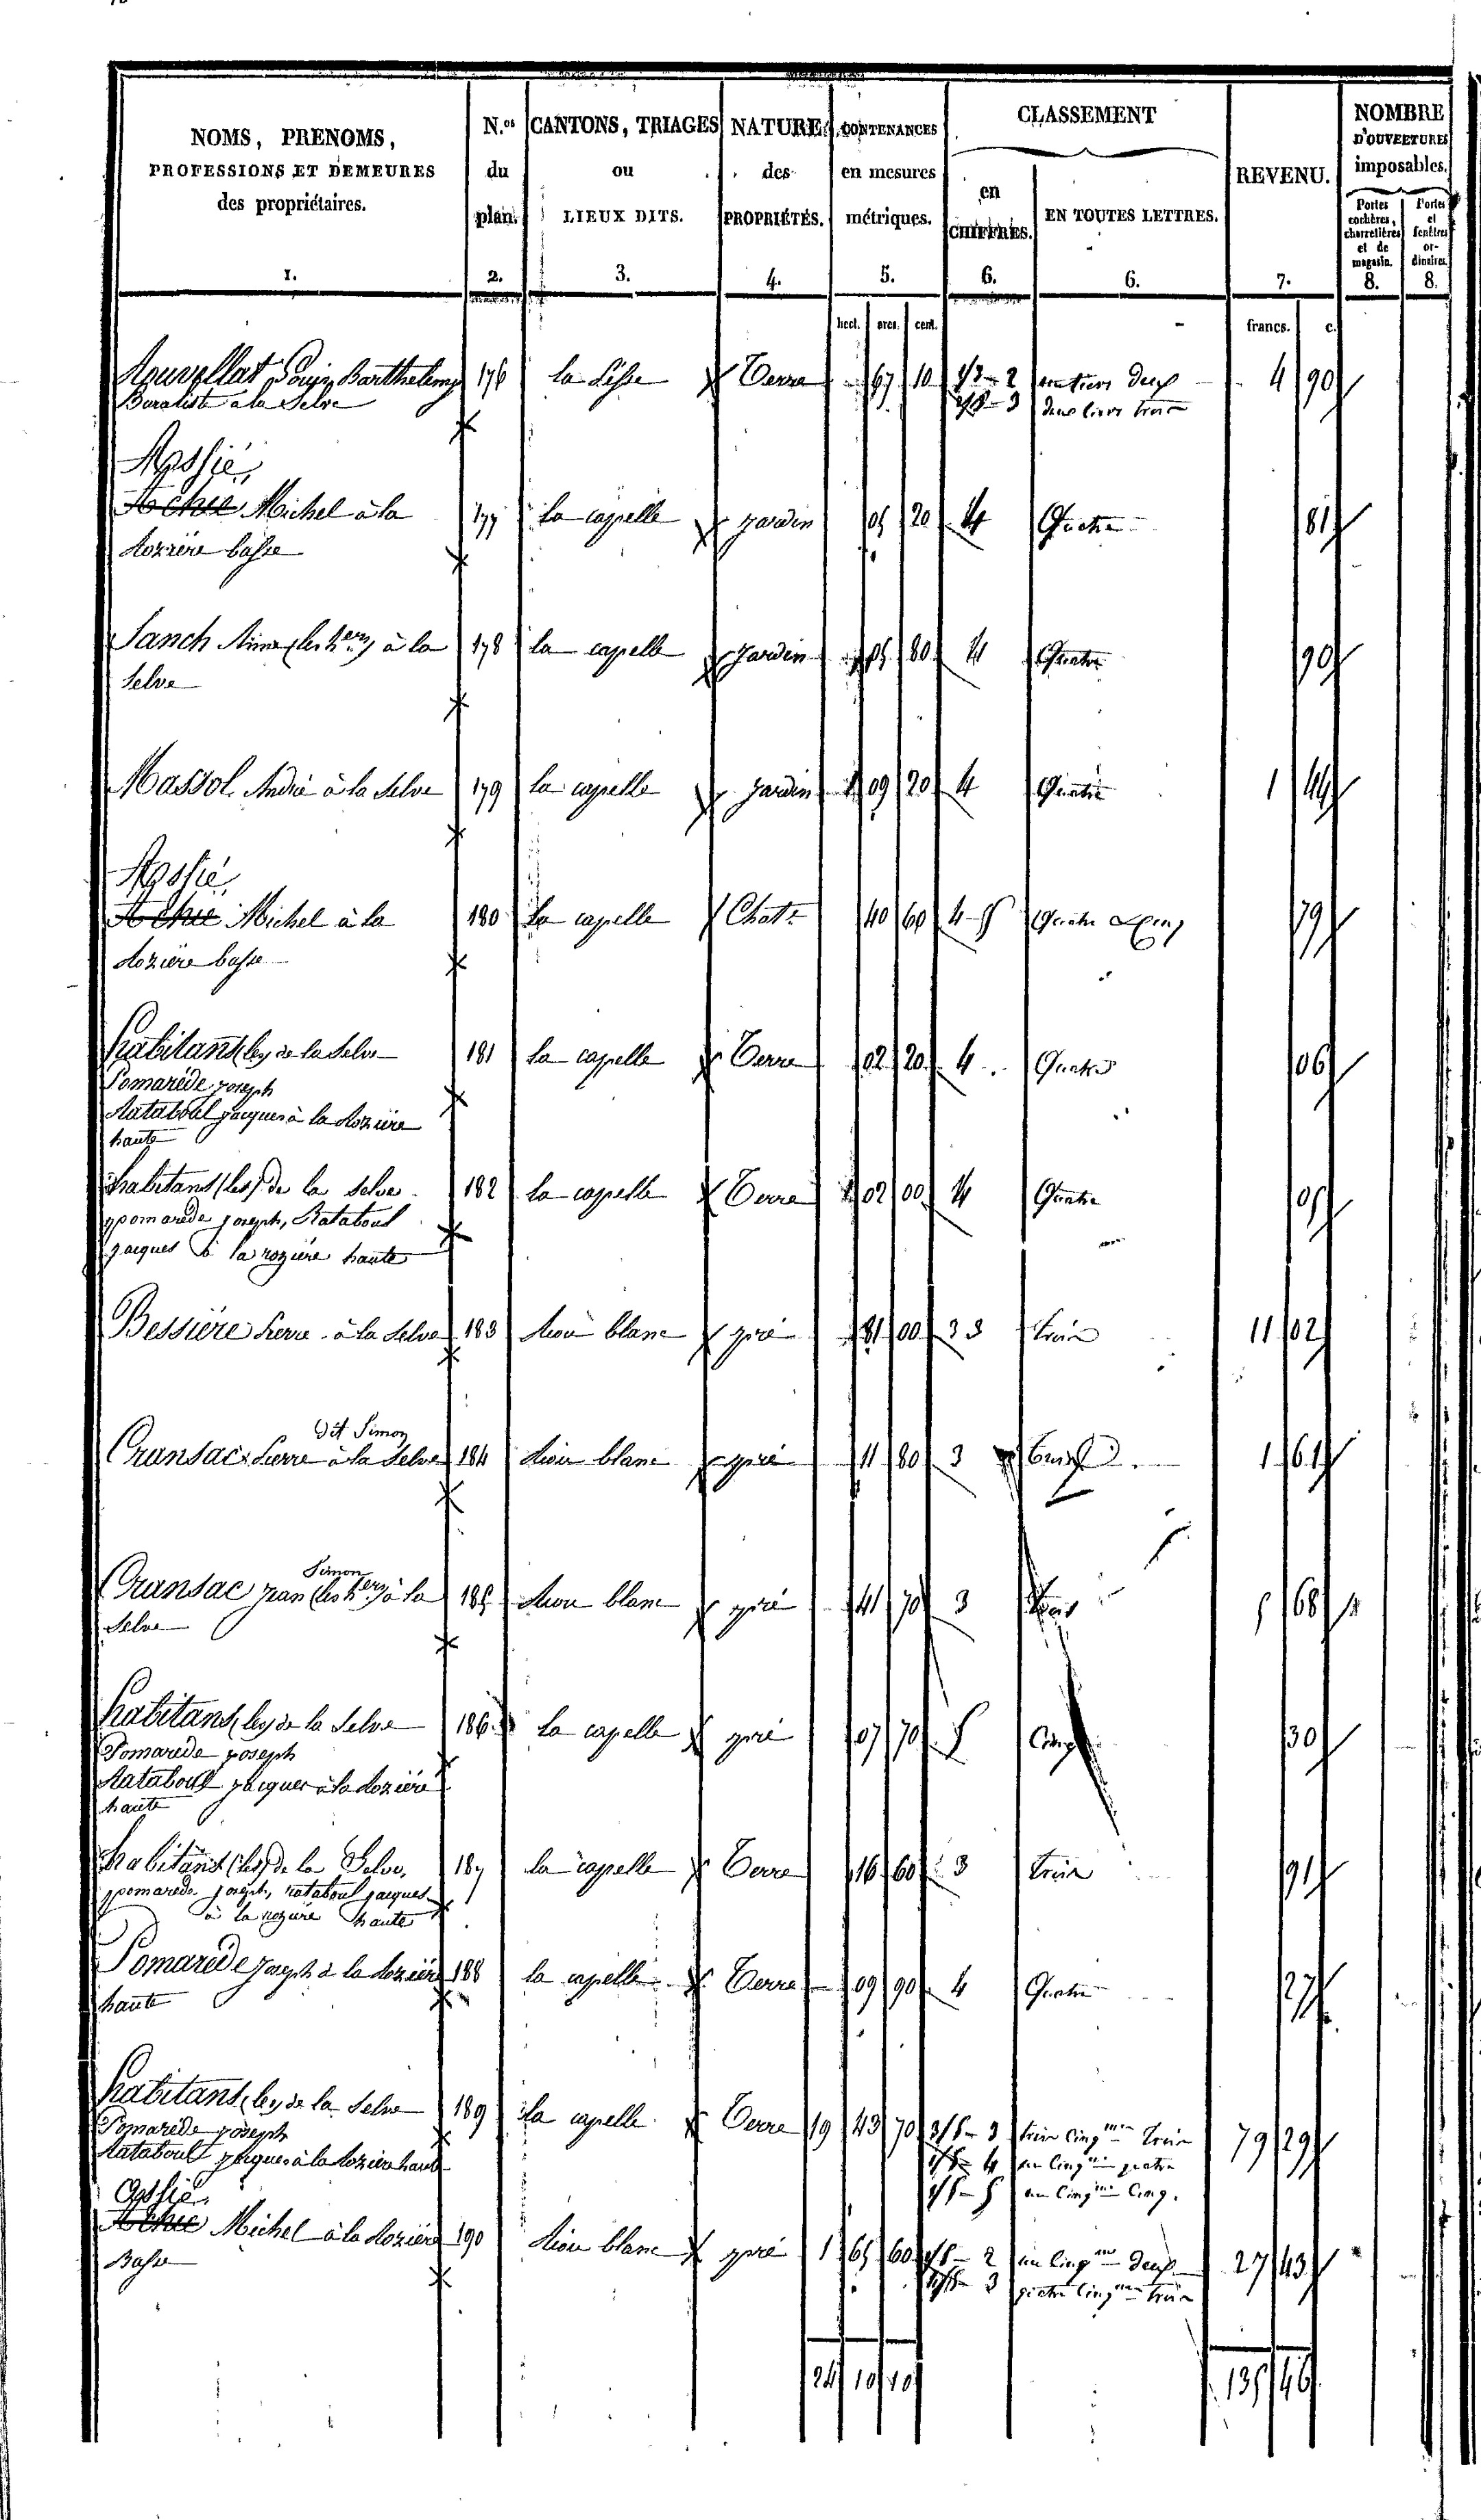 NOMS, PRENOMS, PROFESSIONS ET DEMEURES des propriétaires. 1.
N.os du plan. 2.
CANTONS, TRIAGES ou LIEUX DITS. 3.
NATURE des PROPRIÉTÉS. 4.
CONTENANCES en mesures métriques. 5.
CLASSEMENT
en CHIFFRES. 6.
EN TOUTES LETTRES. 6.
REVENU. 7.
NOMBRE D'OUVERTURES imposables.
Portes cochères, charretières et de magasin. 8.
Portes et fenêtres ordinaires. 8.
hect. ares. cent. francs. c.
Barthelemy 176 Terre 67 10 1/3 - 2 un tiers deux 4 90
Buraliste a la Selve 2/3 - 3 deux tiers trois
Assié,
Michel à la 177 la capelle jardin 05 20 4 Quatre 81
Rozière basse
Sanch (les hers) à la 178 la capelle jardin 05 80 4 Quatre 90
Selve
Massol André à la Selve 179 la capelle jardin 09 20 4 Quatre 1 44
Assié,
Michel à la 180 la capelle Chat.e 40 60 4-5 Quatre & Cinq 79
Rozière basse
habitans (les) de la Selve 181 la capelle Terre 02 20 4 Quatre 06
Pomarède joseph
Rataboul jacques à la Rozière
haute
habitans (les) de la Selve 182 la capelle Terre 02 00 4 Quatre 05
pomarede joseph, Rataboul
jacques à la rozière haute
Bessière Pierre à la Selve 183 Riou blanc pré 81 00 3 3 trois 11 02
dit Simon
Cransac Pierre à la Selve 184 Riou blanc pré 11 80 3 trois 1 61
Simon
Cransac jean (les hers) à la 185 Riou blanc pré 41 70 3 trois 5 68
Selve
habitans (les) de la Selve 186 la capelle pré 07 70 5 Cinq 30
Pomarède joseph
Rataboul jacques à la Rozière
haute
habitans (les) de la Selve, 187 la capelle Terre 16 60 3 trois 91
pomarede joseph, rataboul jacques
à la rozière haute
Pomarède joseph à la Rozière 188 la capelle Terre 09 90 4 Quatre 27
haute
habitans (les) de la Selve 189 la capelle Terre 19 43 70 3/5 - 3 trois cinqmes trois 79 29
Pomarède joseph 1/5 - 4 un cinqme quatre
Rataboul jacques à la Rozière haute 1/5 - 5 un cinqme cinq.
Assié,
Michel à la Rozière 190 Riou blanc pré 1 65 60 1/5 - 2 un cinqme deux 27 43
Basse 4/5 - 3 quatre cinqmes trois
24 10 10 135 46